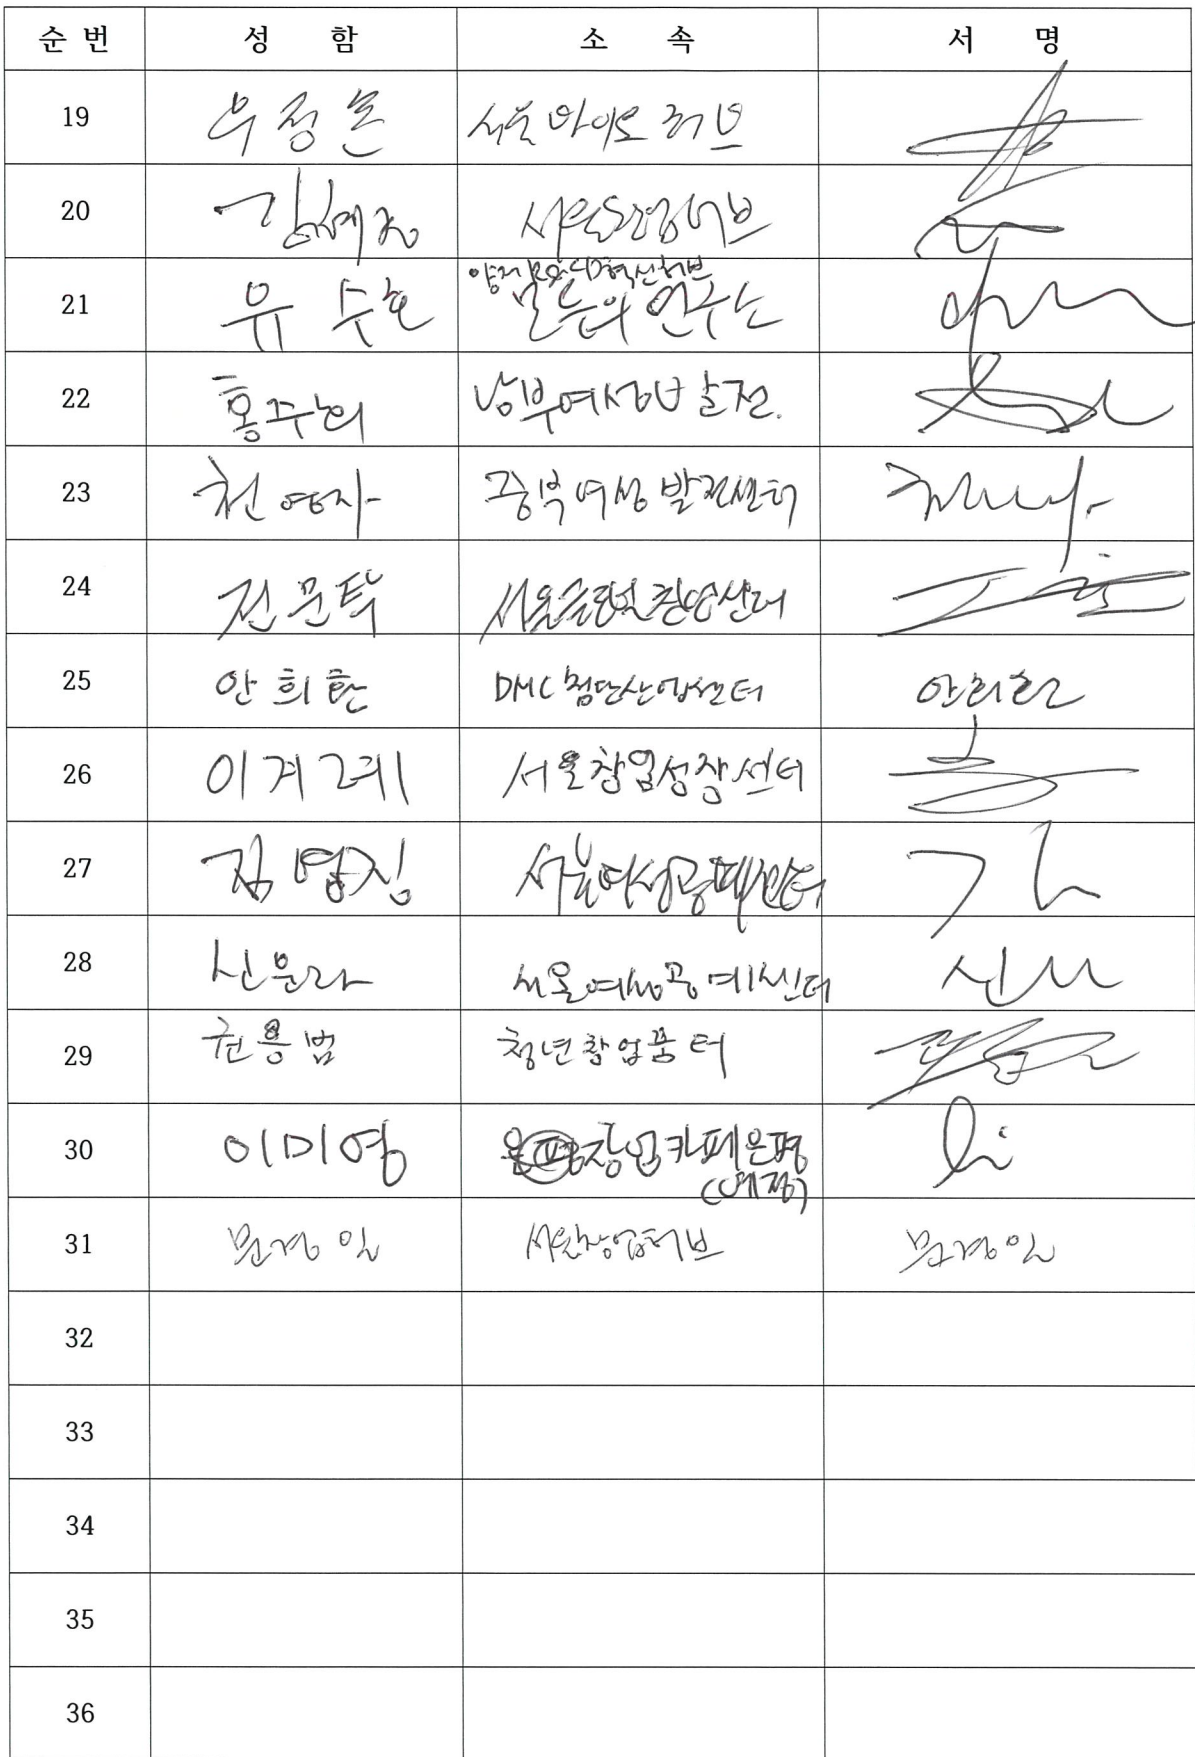 순 번 성 함 소 속 서 명
19 우정훈 서울바이오허브
20 서울창업허브
21 유수훈 양재R&CD혁신허브
모두의연구소
22 홍주희 남부여성발전.
23 천영자 중부여성발전센터
24 전문택 서울글로벌창업센터
25 안희환 DMC첨단산업센터 안희환
26 이계례 서울창업성장센터
27 김영징 서울여성공예센터
28 신윤라 서울여성공예센터 신
29 권용범 청년창업꿈터
30 이미영 창업카페은평
(예정)
31 문경일 서울창업허브 문경일
32
33
34
35
36